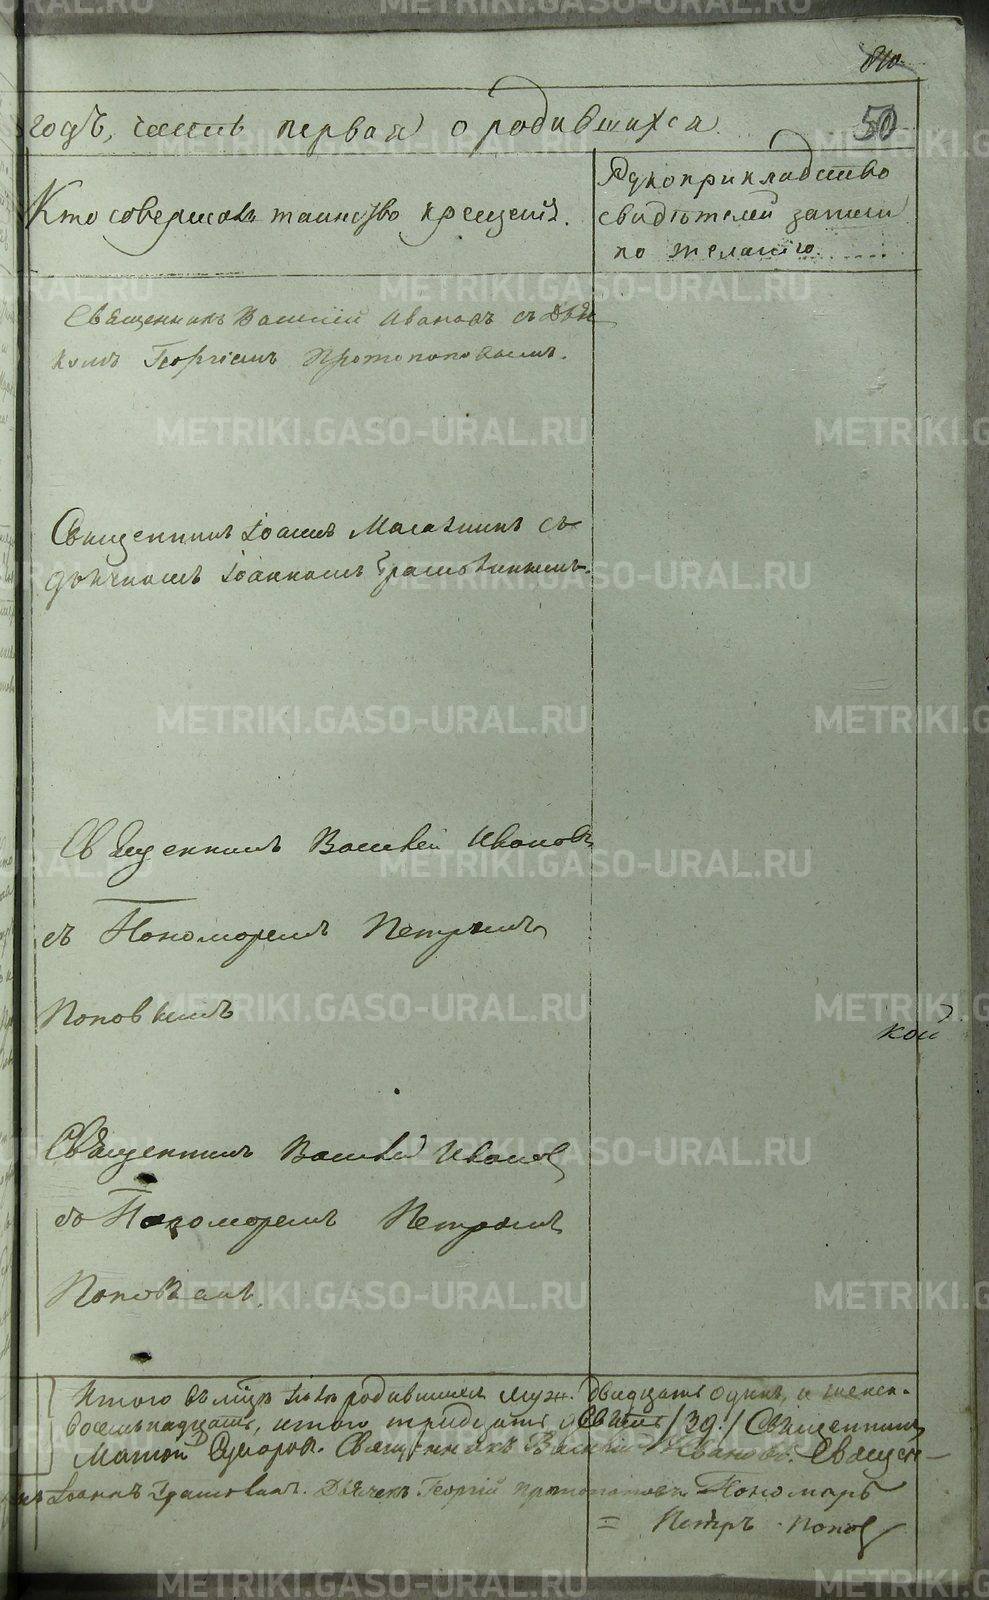 50
годъ, часть первая о родившихся.
Кто совершалъ таинство крещенія.
Рукоприкладство
свидѣтелей записи
по желанію.
Священникъ Василій Ивановъ съ Дьяч
комъ Георгіемъ Протопоповымъ.
Священникъ Іоаннъ съ
дьячкомъ Іоанномъ
Священникъ Василій Ивановъ
съ Пономоремъ Петромъ
Поповымъ
кой
Священникъ Василій Ивановъ
съ Пономоремъ Петромъ
Поповымъ
Итого въ родившихся муж. двадцать одинъ, и женск.
восемьнадцать, итого тридцать девять /39./ Священникъ
Священникъ Василій Ивановъ. Священ-
Іоаннъ Дьячекъ Георгій Протопоповъ. Пономарь
= Петръ Попов
METRIKI.GASO-URAL.RU